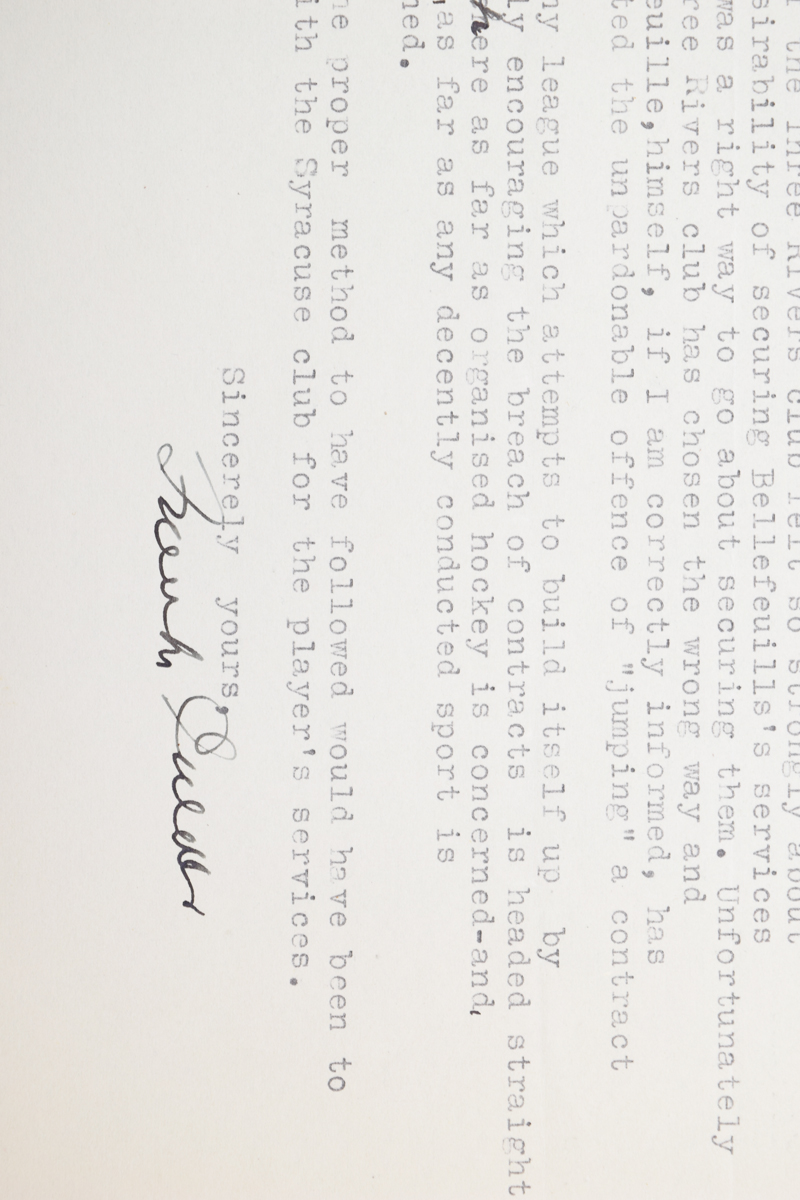 the Three Rivers club felt so strongly about
sirability of securing Bellefeuills's services
was a right way to go about securing them. Unfortunately
ree Rivers club has chosen the wrong way and
euille,himself, if I am correctly informed, has
ted the unpardonable offence of "jumping" a contract
ny league which attempts to build itself up by
ly encouraging the breach of contracts is headed straight
here as far as organised hockey is concerned-and,
as far as any decently conducted sport is
ned.
he proper method to have followed would have been to
ith the Syracuse club for the player's services.
Sincerely yours,
Frank